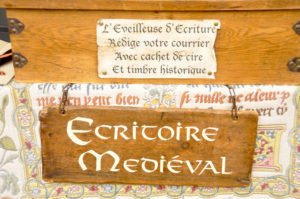 L'Eveilleuse d'Ecriture
Rédige votre courrier
Avec cachet de cire
Et timbre historique
me peut bien
si nulle
Ecritoire
Medıéval